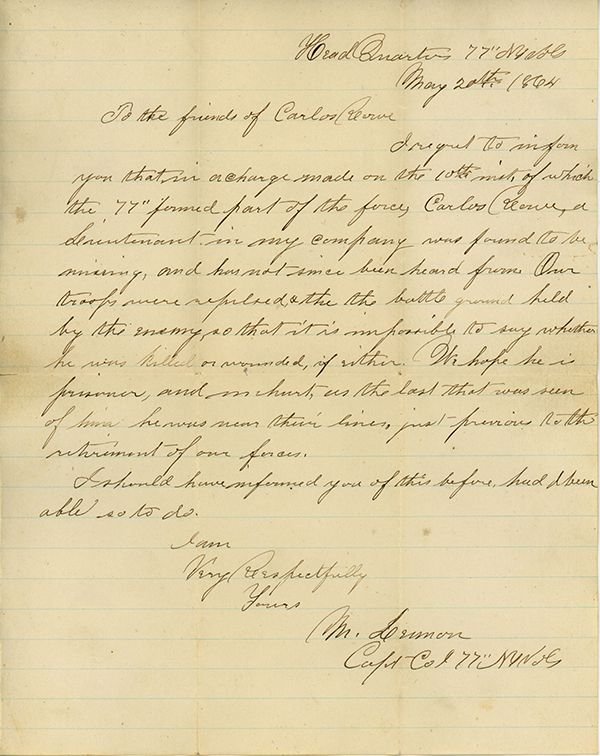 Head Quarters 77" NY Vols
May 20th 1864
To the friends of Carlos Rowe
I regret to inform
you that, in a charge made on the 10th inst, of which
the 77" formed part of the force, Carlos Rowe, a
Lieutenant in my company was found to be
missing, and has not since been heard from. Our
troops were repulsed & the the battle ground held
by the enemy, so that it is impossible to say whether
he was killed or wounded, if either. We hope he is
prisoner, and unhurt, as the last that was seen
of him he was near their lines, just previous to the
retirement of our forces.
I should have informed you of this before, had I been
able so to do.
I am
Very Respectfully
Yours
M. Lennon
Capt Co I 77" NY Vols